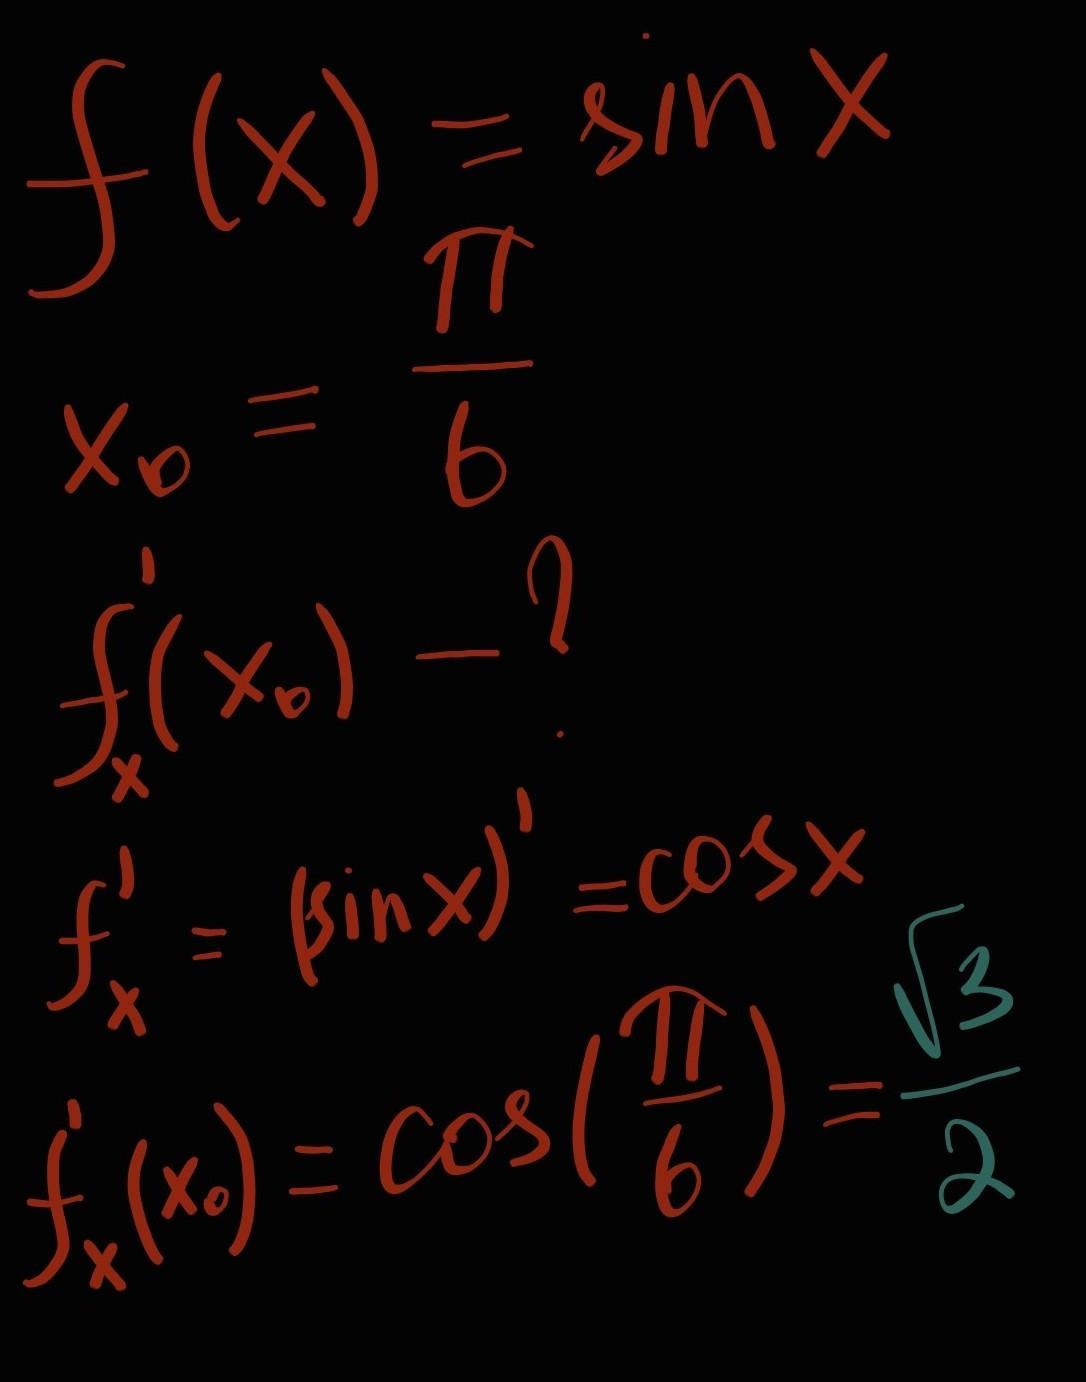 f(x) = sin x
x₀ = π/6
f'ₓ(x₀) — ?
f'ₓ = (sin x)' = cos x
f'ₓ(x₀) = cos(π/6) = √3/2